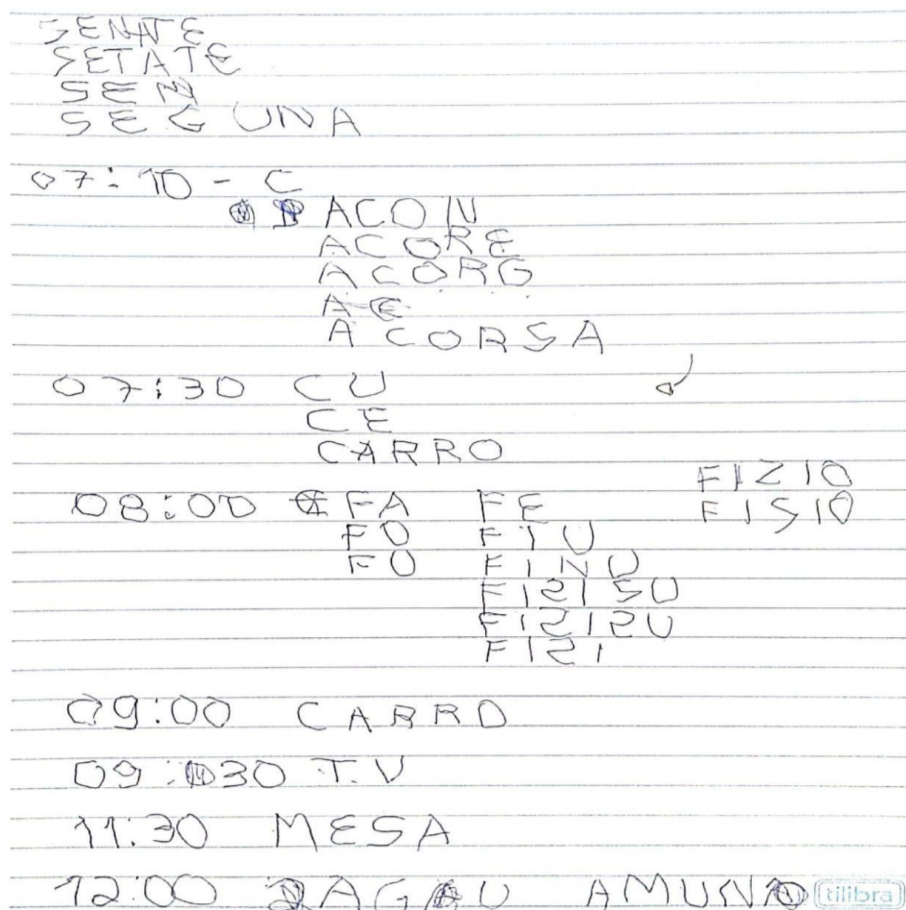 SENTE
SETATE
SEN
SEGUNA
07:10 - C
ACOIN
ACORE
ACORG
AC
ACORSA
07:30 CU
CE
CARRO
FIZIO
08:00 FA FE FISIO
FO FIU
FU FINU
FIZISU
FIZIZU
FIZI
09:00 CARRO
09:030 T.V
11:30 MESA
12:00 AMUNO
tilibra